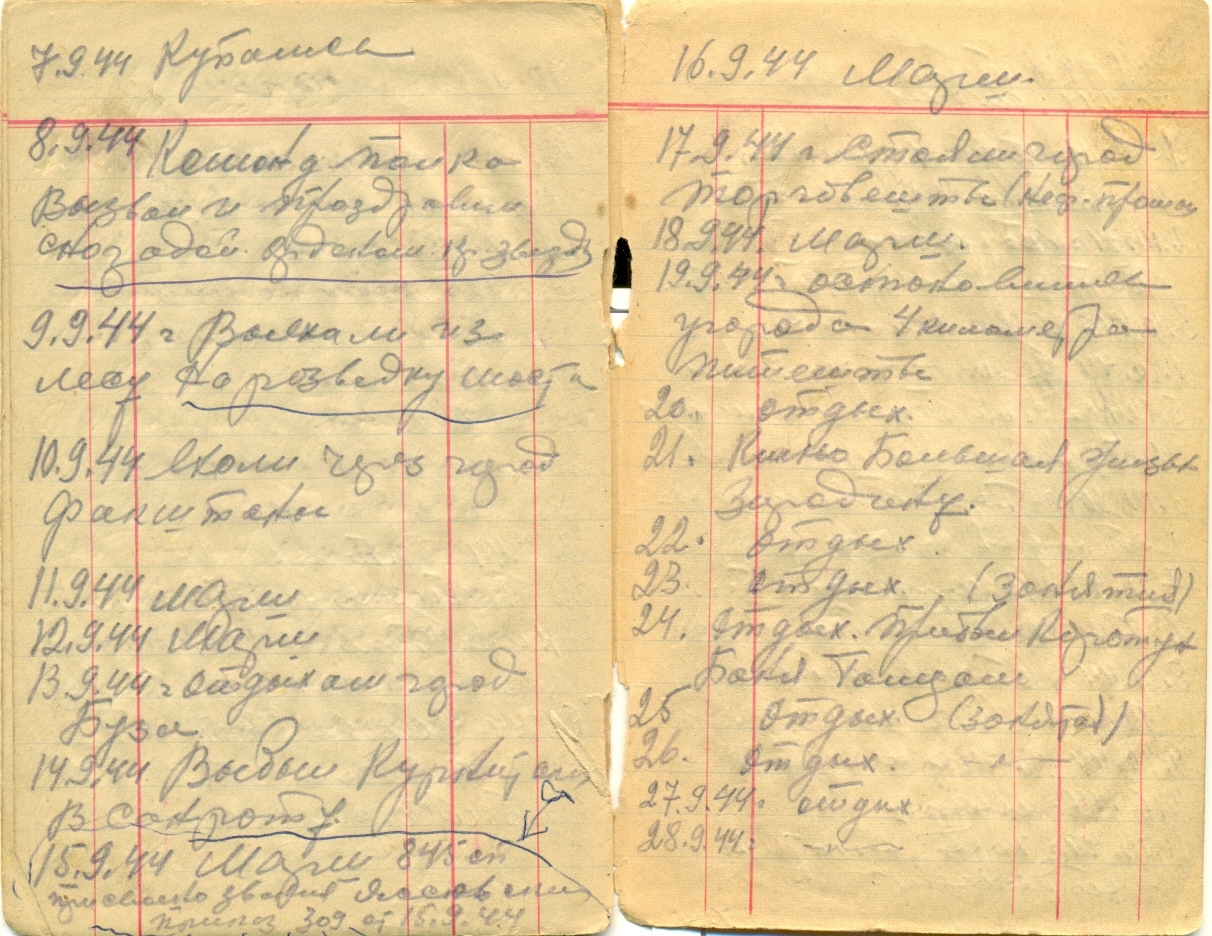 7.9.44 Купались
8.9.44 Команд полка
Вызвал и поздравил
с наградой орденом кр. звезд
9.9.44 г Выехали из
лесу на разведку моста
10.9.44 Ехали через город
Факштаны
11.9.44 Марш
12.9.44 Марш
13.9.44 г отдыхали город
Бузе
14.9.44 Выбыл
В санроту.
15.9.44 Марш 845 сп
присвоено звания Ясский
приказ 309 от 15.9.44
16.9.44 Марш.
17.9.44 г Стояли город
Торговешты (Неф.
18.9.44. Марш.
19.9.44 г остановились
у города 4 километра
Питешты
20. отдых.
21. Кино Большая Жизнь
За родину.
22. отдых.
23. отдых. (Занятия)
24. отдых. Прибыл
Баня
25 отдых (занятия)
26. отдых. -"-
27.9.44. отдых
28.9.44: